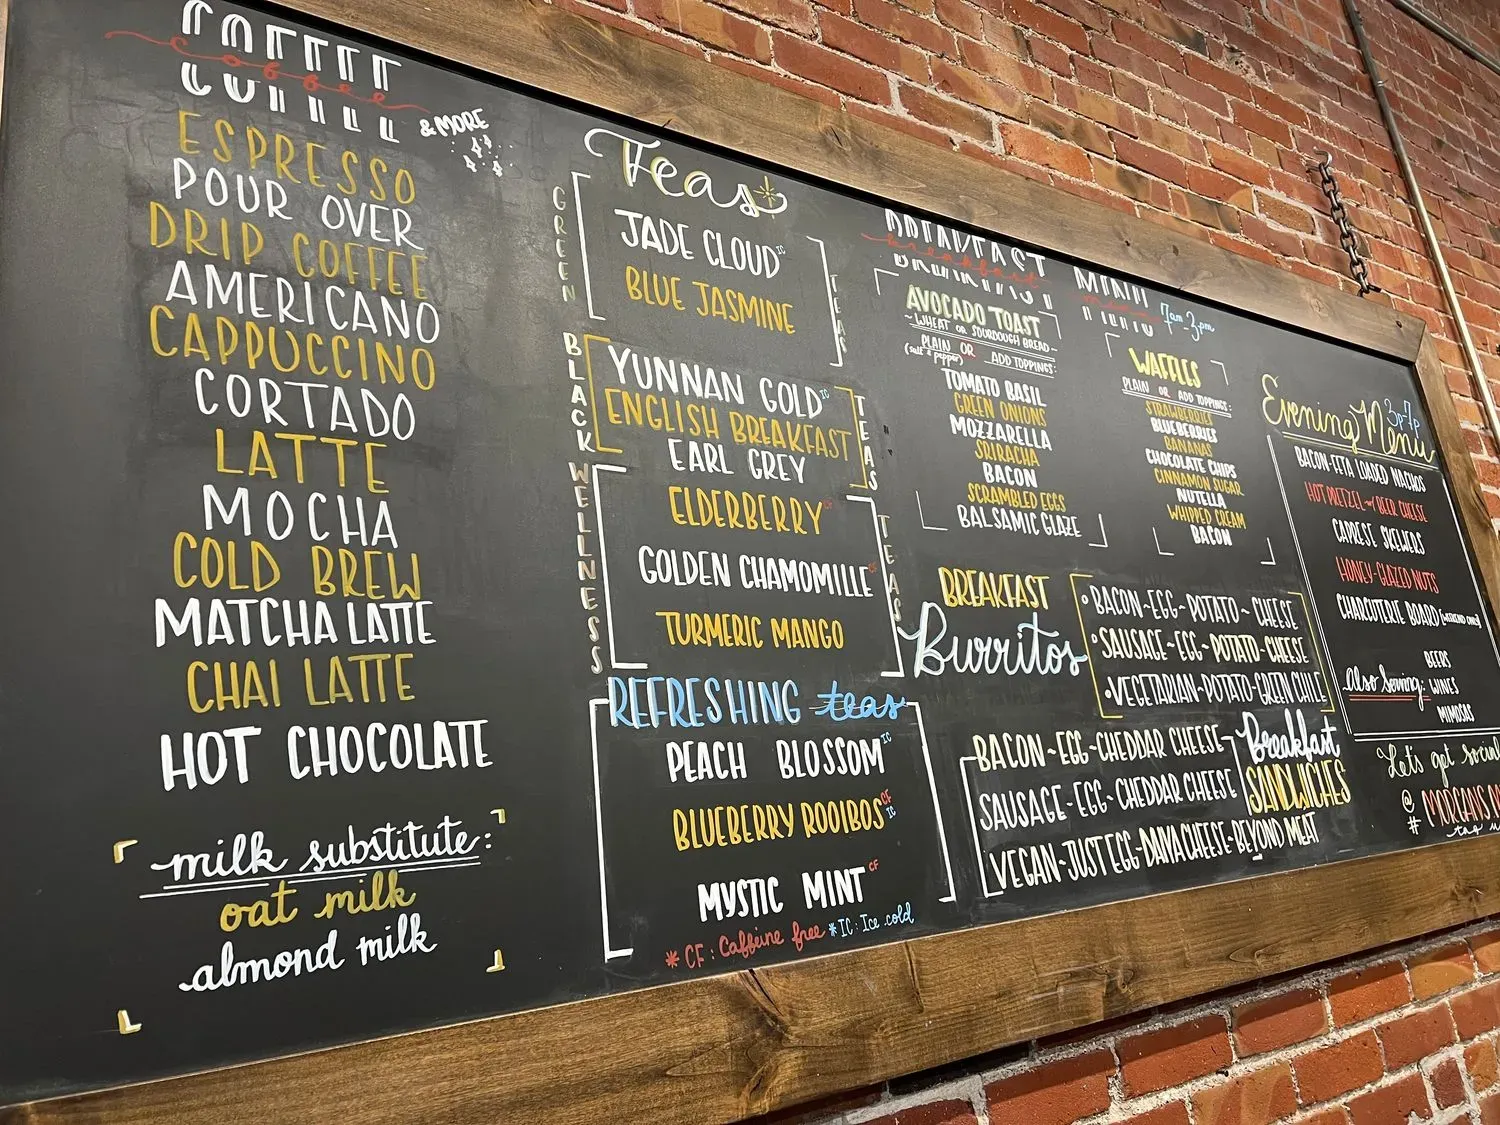 COFFEE
coffee
& MORE
ESPRESSO
POUR OVER
DRIP COFFEE
AMERICANO
CAPPUCCINO
CORTADO
LATTE
MOCHA
COLD BREW
MATCHA LATTE
CHAI LATTE
HOT CHOCOLATE
milk substitute:
oat milk
almond milk
Teas
GREEN TEAS
JADE CLOUD IC
BLUE JASMINE
BLACK TEAS
YUNNAN GOLD IC
ENGLISH BREAKFAST
EARL GREY
WELLNESS TEAS
ELDERBERRY CF
GOLDEN CHAMOMILLE CF
TURMERIC MANGO
REFRESHING teas
PEACH BLOSSOM IC
BLUEBERRY ROOIBOS CF IC
MYSTIC MINT CF
* CF: Caffeine free * IC: Ice cold
BREAKFAST MENU 7am-3pm
breakfast menu
AVOCADO TOAST
~ WHEAT OR SOURDOUGH BREAD ~
PLAIN OR ADD TOPPINGS:
(salt & pepper)
TOMATO BASIL
GREEN ONIONS
MOZZARELLA
SRIRACHA
BACON
SCRAMBLED EGGS
BALSAMIC GLAZE
WAFFLES
PLAIN OR ADD TOPPINGS:
STRAWBERRIES
BLUEBERRIES
BANANAS
CHOCOLATE CHIPS
CINNAMON SUGAR
NUTELLA
WHIPPED CREAM
BACON
BREAKFAST
Burritos
• BACON~EGG~POTATO~CHEESE
• SAUSAGE~EGG~POTATO~CHEESE
• VEGETARIAN~POTATO~GREEN CHILE
Breakfast
SANDWICHES
BACON~EGG~CHEDDAR CHEESE
SAUSAGE~EGG~CHEDDAR CHEESE
VEGAN~JUST EGG~DAIYA CHEESE~BEYOND MEAT
Evening Menu 3p-7p
BACON-FETA LOADED NACHOS
HOT PRETZEL~BEER CHEESE
CAPRESE SKEWERS
HONEY-GLAZED NUTS
CHARCUTERIE BOARD (WEEKEND ONLY)
also serving:
BEERS
WINES
MIMOSAS
Let's get social
@
#
MORGANS
tag